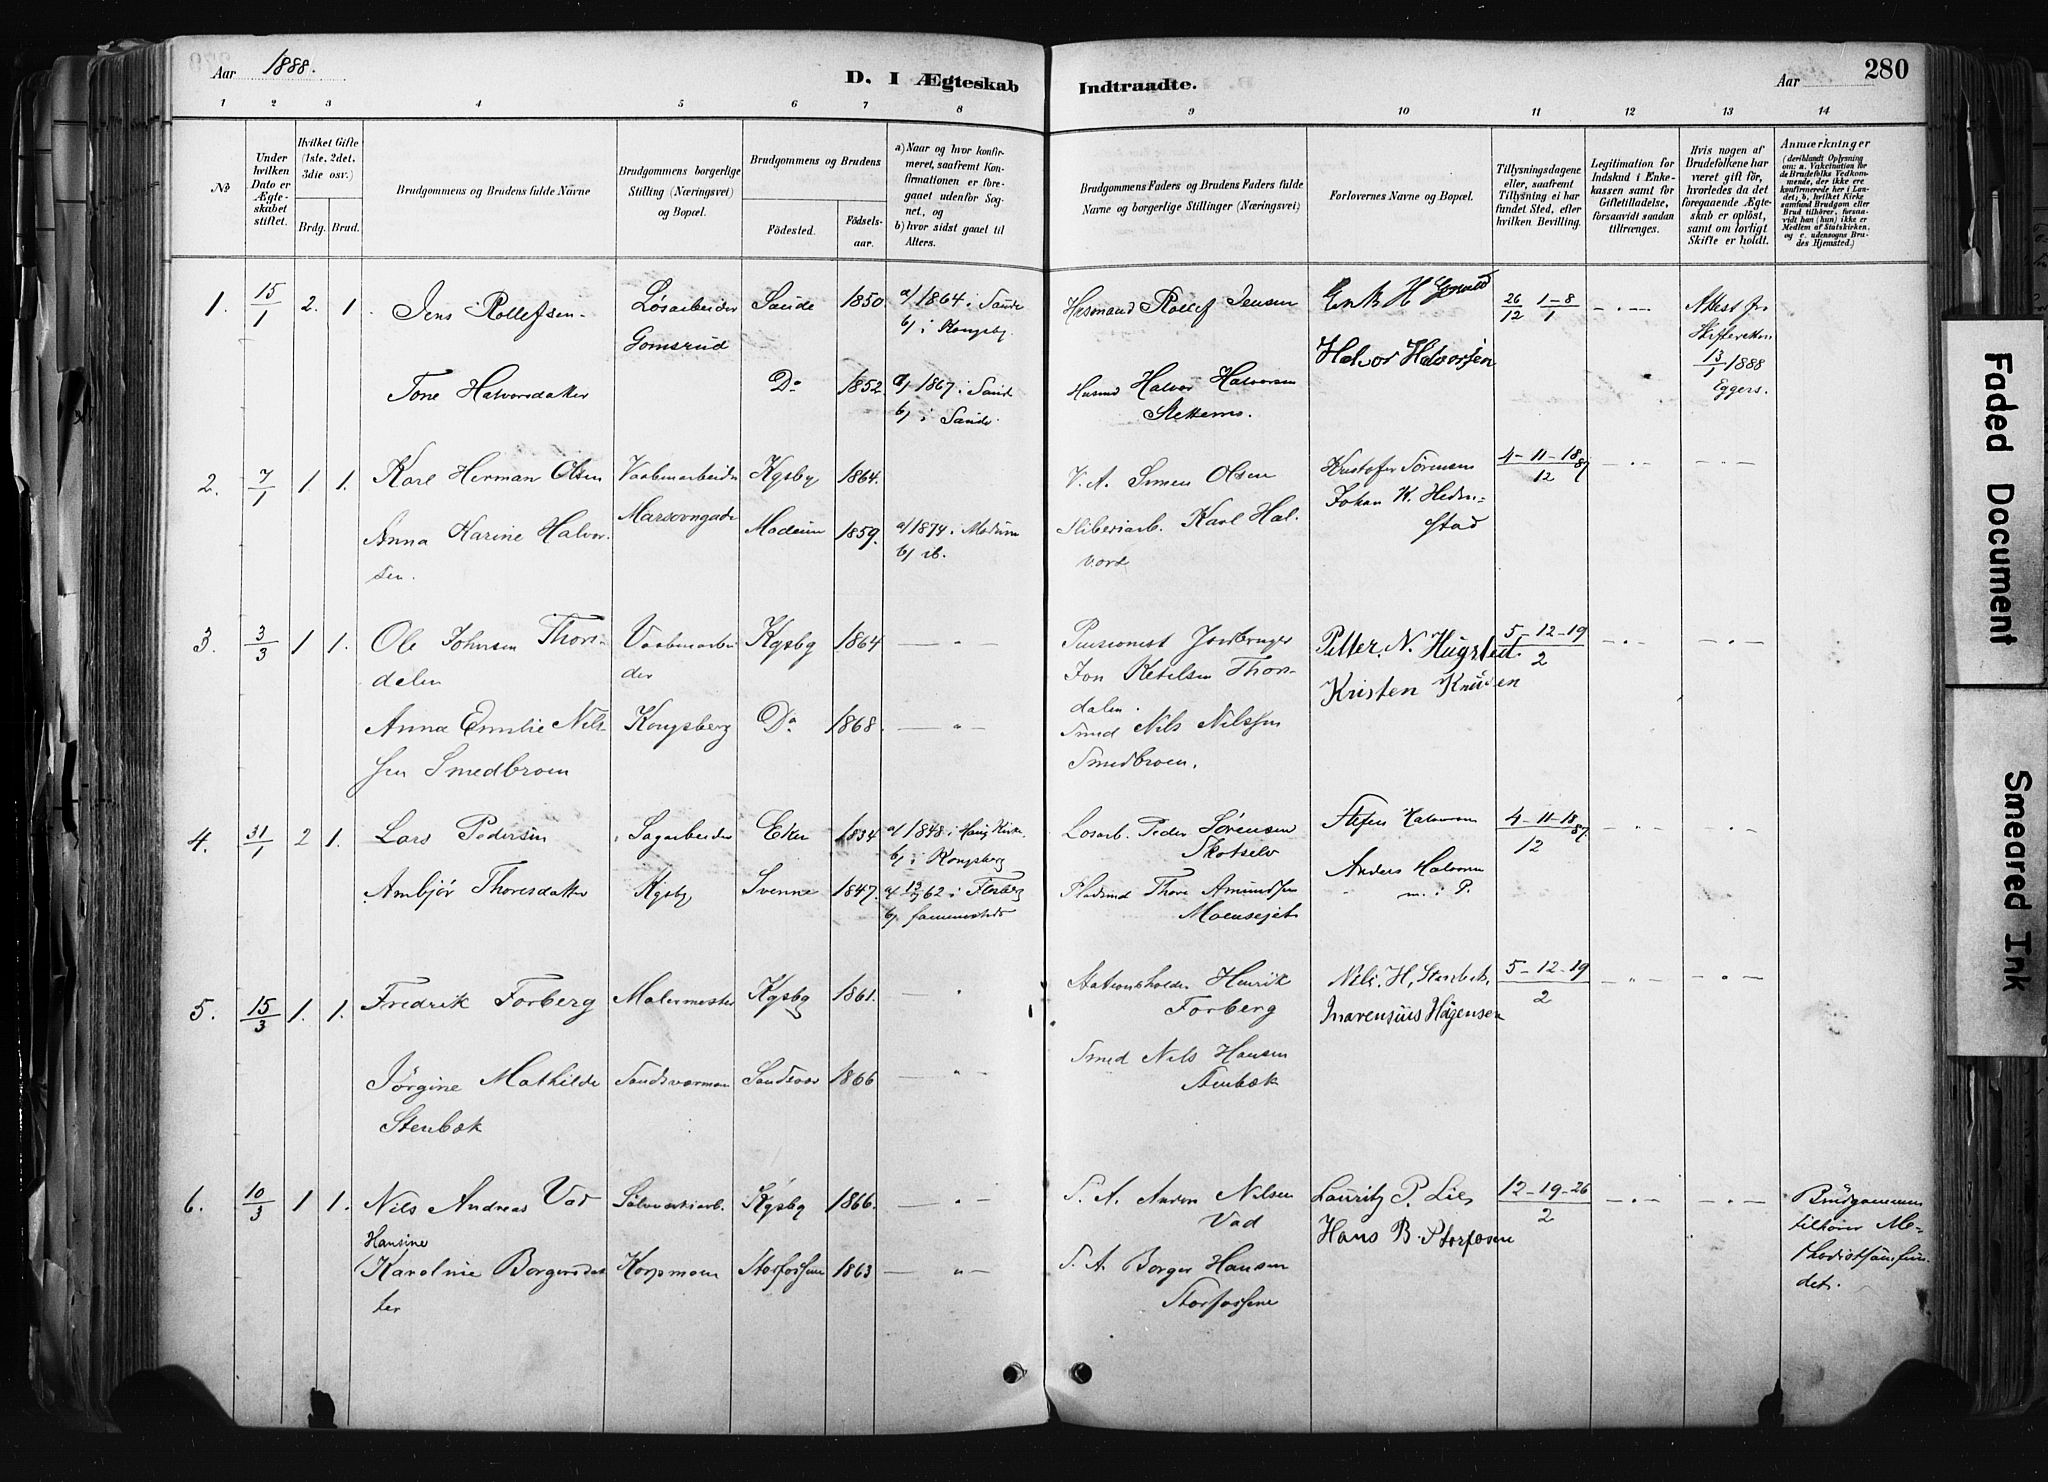 Aar 1888.
D. I Ægteskab
Indtraadte.
Aar
280
1 2 3 4 5 6 7 8
9 10 11 12 13 14
No
Under hvilken Dato er Ægteskabet stiftet.
Hvilket Gifte (1ste, 2det, 3die osv.)
Brdg. Brud.
Brudgommens og Brudens fulde Navne
Brudgommens borgerlige Stilling (Næringsvei) og Bopæl.
Brudgommens og Brudens
Fødested.
Fødselsaar.
a) Naar og hvor konfirmeret, saafremt Konfirmationen er foregaaet udenfor Sognet, og
b) hvor sidst gaaet til Alters.
Brudgommens Faders og Brudens Faders fulde Navne og borgerlige Stillinger (Næringsvei)
Forlovernes Navne og Bopæl.
Tillysningsdagene eller, saafremt Tillysning ei har fundet Sted, efter hvilken Bevilling.
Legitimation for Indskud i Enkekassen samt for Giftetilladelse, forsaavidt saadan tiltrænges.
Hvis nogen af Brudefolkene har været gift før, hvorledes da det foregaaende Ægteskab er opløst, samt om lovligt Skifte er holdt.
Anmærkninger
(deriblandt Oplysning om: a. Vakcination for de Brudefolks Vedkommende, der ikke ere konfirmerede her i Landet; b. hvilket Kirkesamfund Brudgom eller Brud tilhører, forsaavidt han (hun) ikke er Medlem af Statskirken, og c. udensogns Brudes Hjemsted.)
1. 15/1 2. 1. Jens Rollefsen Løsarbeider Sande 1850. a/ 1864 i Sande Husmand Rollef Jensen 26/12 1-8/1 Attest fr.
Gomsrud b/ i Kongsbg. Halvor Halvorsen Skifteretten
13/1 1888
Tone Halvorsdatter Do 1852. a/ 1867 i Sande Husmd Halvor Halvorsen Eggers.
b/ i Sande.
2. 7/1 1. 1. Karl Herman Olsen Vaabenarbeider Kgsbg 1864. V. A. Simen Olsen Kristofer Sørensen 4-11-18/12 87
Johan K. Hedenstad
Anna Karine Halvorsen. Modum 1859. a/ 1874 i Modum Sliberiarb. Karl Halvors
b/ ib.
3. 3/3 1 1. Ole Johnsen Thorsdalen Vaabenarbeider Kgsbg 1864 Pensionist Jordbruger Petter. N. Hugsted. 5-12-19/2
Jon Ketilsen Thorsdalen. Kristen Knudsen
Anna Emilie Nilssen Smedbroen Kongsberg Do 1868. Smed Nils Nilssen
Smedbroen.
4. 31/1 2 1. Lars Pedersen Sagarbeider Eker 1834 a/ 1848 i Haug Kirke. Løsarb. Peder Sørensen Stefen Halvorsen 4-11-18/12 87.
b/ i Kongsberg Skotselv
Ambjør Thoresdatter Kgsbg Svenne 1847. a/ 62 i Flesberg Pladsmd Thore Amundsen Anders Halvorsen
b/ sammesteds Moensejet
5. 15/3 1. 1. Fredrik Forberg Malermester Kgsbg 1861. Stationsholder Henrik Nils. H. Stenbek. 5-12-19/2
Forberg Marensius Hagensen
Jørgine Mathilde Sandsværmoen Sandsvær 1866 Smed Nils Hansen
Stenbæk Stenbæk
6. 10/3 1 1. Nils Andreas Vad Sølvværksarb. Kgsbg 1866. S. A. Anders Nilsen Lauritz P. Lie 12-19-26/2 Brudgommen
Vad Hans B. Storfosen tilhører Methodistsamfundet.
Hansine
Karoline Borgersdatter Korpmoen Storfossene 1863 S. A. Borger Hansen
Storfossene
Faded Document
Smeared Ink